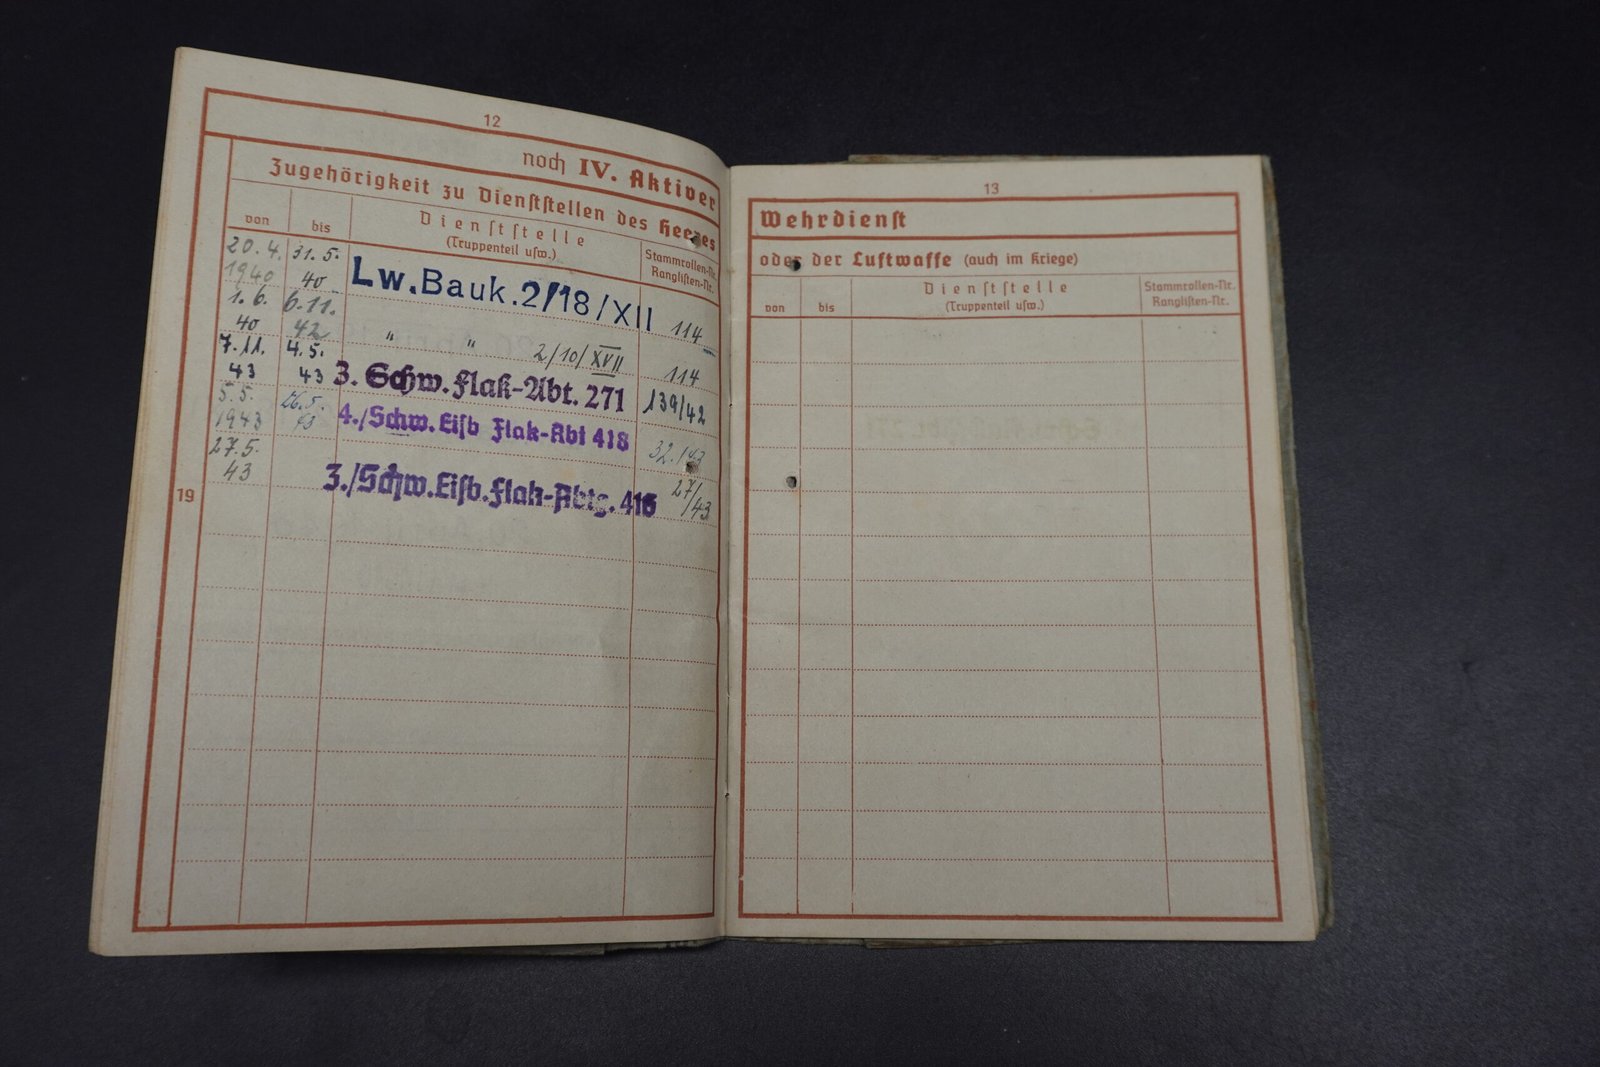 12
noch IV. Aktiver
Zugehörigkeit zu Dienststellen des Heeres
von bis Dienststelle (Truppenteil usw.) Stammrollen-Nr. Ranglisten-Nr.
20.4. 1940 31.5. 40 Lw.Bauk.2/18/XII 114
1.6. 40 6.11. 42 " " 2/10/XVII 114
7.11. 43 4.5. 43 3. Schw. Flak-Abt. 271 139/42
5.5. 1943 26.5. 43 4./Schw. Eisb Flak-Abt 418
27.5. 43 3./Schw. Eisb. Flak-Abtg. 416 27/43
19
13
Wehrdienst
oder der Luftwaffe (auch im Kriege)
von bis Dienststelle (Truppenteil usw.) Stammrollen-Nr. Ranglisten-Nr.